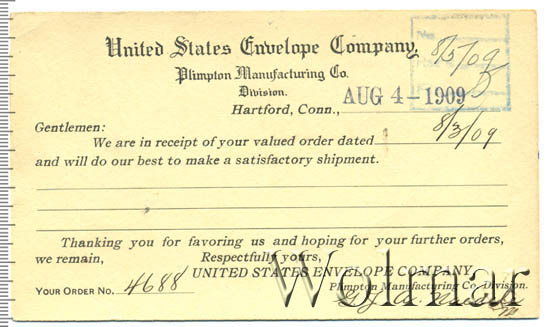 United States Envelope Company,
Plimpton Manufacturing Co.
Division.
No.
8/5/09
Hartford, Conn., AUG 4 - 1909
Gentlemen:
We are in receipt of your valued order dated 8/3/09
and will do our best to make a satisfactory shipment.
Thanking you for favoring us and hoping for your further orders,
we remain, Respectfully yours,
UNITED STATES ENVELOPE COMPANY,
Plimpton Manufacturing Co. Division.
YOUR ORDER NO. 4688
Wolmar